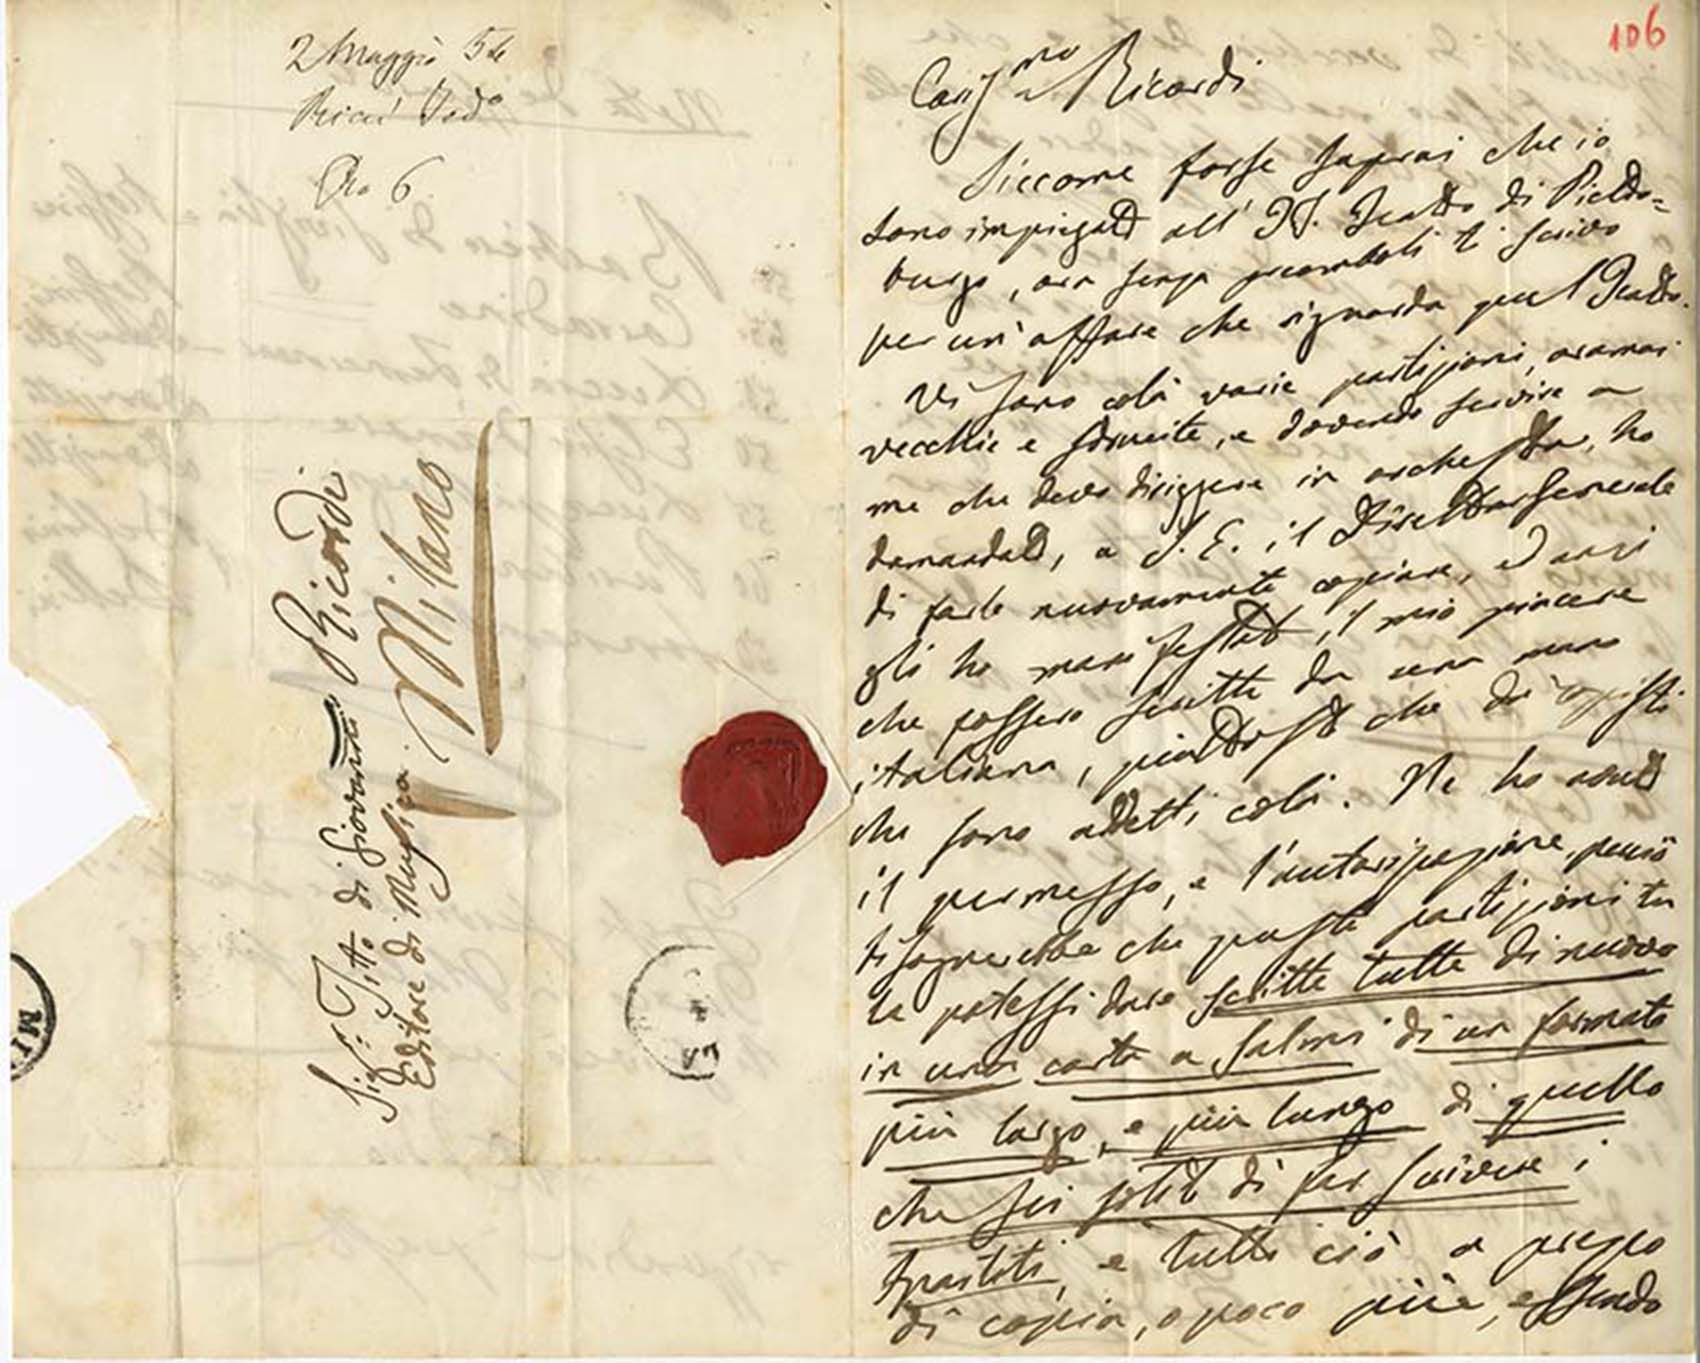 2 Maggio 54
Ricci Fed.º
6
Sig.r Tito di Giovanni Ricordi
Editore di Musica. Milano
106
Carissmo Ricordi
Siccome forse saprai che io
sono impiegato all' II. Teatro di Pietro=
burgo, ora senza preamboli ti scrivo
per un'affare che riguarda quel Teatro.
Vi sono colà varie partizioni, oramai
vecchie e sdrucite, e dovendo servire a
me che devo diriggere in orchestra, ho
domandato, a S. E. il Direttor Generale
di farle nuovamente copiare, ed anzi
gli ho manifestato, il mio piacere
che fossero scritte da una mano
italiana, piuttosto che di copisti
che sono addetti colà. Ne ho avuto
il permesso, e l'autorizzazione, perciò
bisognerebbe che queste partizioni tu
le potessi dare scritte tutte di nuovo
in una carta a salmi di un formato
più largo, e più lungo di quello
che sei solito di far scrivere i
spartiti, e tutto ciò a prezzo
di copia, o poco più, essendo